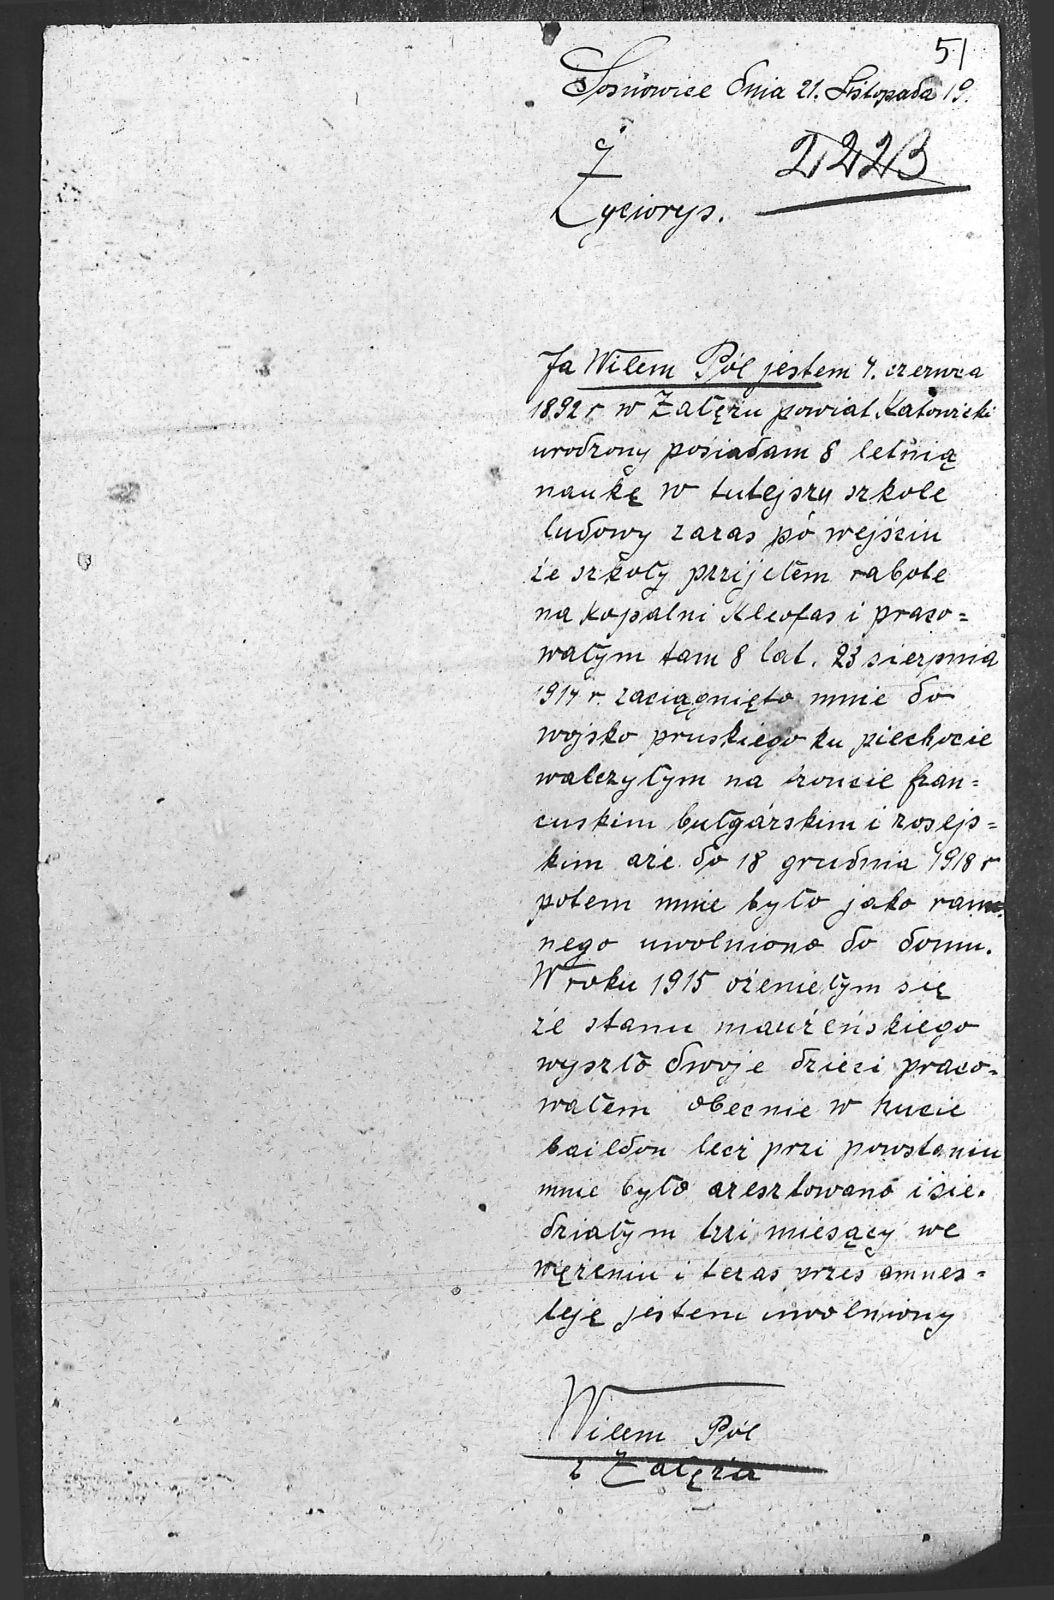 51
Sosnowice dnia 21. Listopada 19.
2223
Życiorys.
Ja Wilem Pól jestem 4. czerwca
1892 r w Załężu powiat Katowicki
urodzony posiadam 8 letnią
naukę w tutejszy szkole
ludowy zaras po wejściu
że szkoły przijełem rabote
na kopalni Kleofas i praco=
wałym tam 8 lat. 23 sierpnia
1914 r. zaciągnięto mnie do
wojsko pruskiego ku piechocie
walczyłym na froncie fran=
cuskim bułgarskim i rosejs=
kim aże do 18 grudnia 1918 r
potem mnie było jako ran
nego uwolniono do domu.
W roku 1915 ożeniełym się
że stanu maużeńskiego
wyszło dwoje dzieci praco=
wałem obecnie w hucie
baildon lecż przi powstaniu
mnie było aresztowano i sie=
działym trzi miesący we
więzeniu i teras przes amnes=
teję jestem uwolniony
Wilem Pól
z Załęża